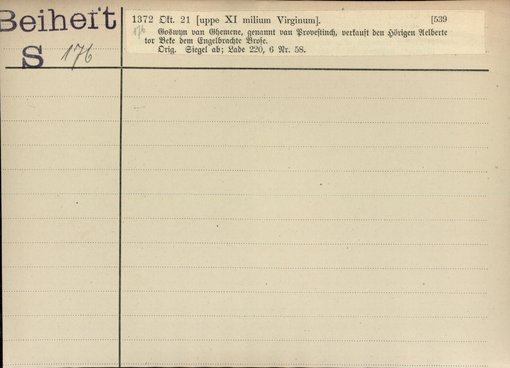 Beihert
S 176
1372 Okt. 21 [uppe XI milium Virginum]. [539
176
Goswyn van Ghemene, genannt van Provestinch, verkauft den Hörigen Aelberte
tor Beke dem Engelbrachte Brose.
Orig. Siegel ab; Lade 220, 6 Nr. 58.